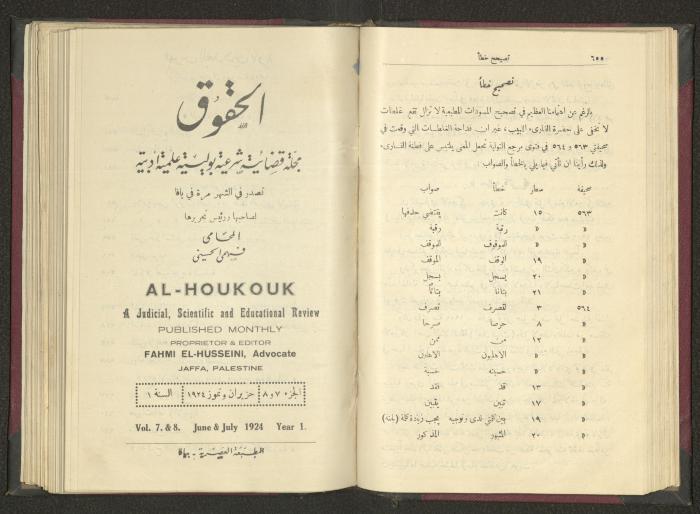 الحقوق
مجلة قضائية شرعية بوليسية علمية ادبية
تصدر في الشهر مرة في يافا
لصاحبها ورئيس تحريرها
المحامي
فهمي الحسيني
AL-HOUKOUK
A Judicial, Scientific and Educational Review
PUBLISHED MONTHLY
PROPRIETOR & EDITOR
FAHMI EL-HUSSEINI, Advocate
JAFFA, PALESTINE
الجزء ٧ و ٨ حزيران وتموز ١٩٢٤ السنة ١
Vol. 7. & 8. June & July 1924 Year 1.
المطبعة العصرية - يافا
٦٥٥ تصحيح خطأ
تصحيح خطأ
بالرغم عن اهتمامنا العظيم في تصحيح المسودات المطبعية لا تزال تقع غلطات
لا تخفى على حضرة القارىء اللبيب، غير ان فداحة الغلطات التي وقعت في
صحيفتي ٥٦٣ و ٥٦٤ في فتوى مرجع التولية تجعل المعنى يلتبس على فطنة القارىء،
ولذلك رأينا ان نأتي فيما يلي بالخطأ والصواب:
صحيفة سطر خطأ صواب
٥٦٣ ١٥ كانت يقتضي حذفها
» » رقبة رقبة
» » للموقوف للموقف
» ١٩ الوقف الموقف
» ٢٠ يسجل بسجل
» ٢١ بتانا بتاتًا
٥٦٤ ٣ للصرف تصرف
» ٨ حرصا صرحا
» ١٢ من ممن
» » الاهليون الاهلين
» » حسبته حسبة
» ١٣ قد فقد
» ١٧ تبين يقبين
» ١٩ بين كلمتي لدى وتوجيه يجب زيادة كلمة (بلدته)
» ٢٠ المشهور المذكور